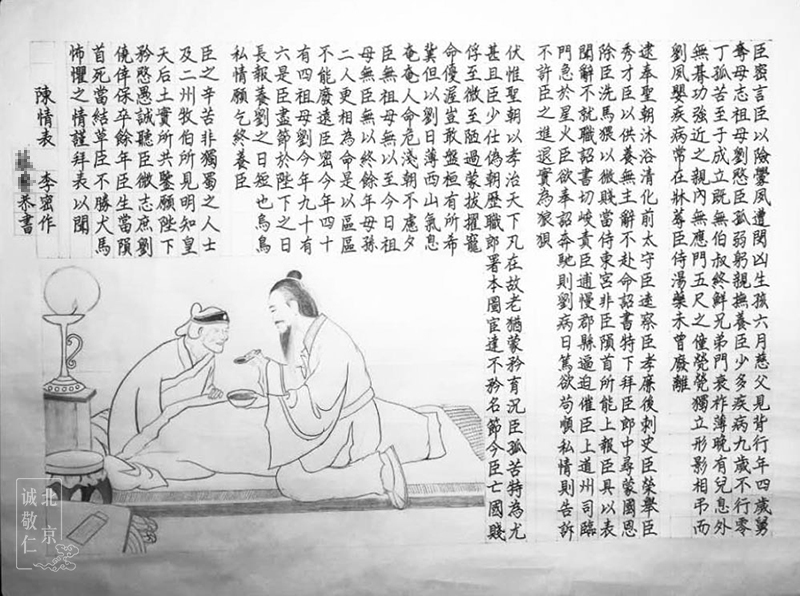 臣密言臣以險釁夙遭閔凶生孩六月慈父見背行年四歲舅
奪母志祖母劉愍臣孤弱躬親撫養臣少多疾病九歲不行零
丁孤苦至于成立既無伯叔終鮮兄弟門衰祚薄晚有兒息外
無朞功強近之親內無應門五尺之僮煢煢獨立形影相弔而
劉夙嬰疾病常在牀蓐臣侍湯藥未曾廢離
逮奉聖朝沐浴清化前太守臣逵察臣孝廉後刺史臣榮舉臣
秀才臣以供養無主辭不赴命詔書特下拜臣郎中尋蒙國恩
除臣洗馬猥以微賤當侍東宮非臣隕首所能上報臣具以表
聞辭不就職詔書切峻責臣逋慢郡縣逼迫催臣上道州司臨
門急於星火臣欲奉詔奔馳則劉病日篤欲苟順私情則告訴
不許臣之進退實為狼狽
伏惟聖朝以孝治天下凡在故老猶蒙矜育況臣孤苦特為尤
甚且臣少仕偽朝歷職郎署本圖宦達不矜名節今臣亡國賤
俘至微至陋過蒙拔擢寵
命優渥豈敢盤桓有所希
冀但以劉日薄西山氣息
奄奄人命危淺朝不慮夕
臣無祖母無以至今日祖
母無臣無以終餘年母孫
二人更相為命是以區區
不能廢遠臣密今年四十
有四祖母劉今年九十有
六是臣盡節於陛下之日
長報養劉之日短也烏鳥
私情願乞終養臣
臣之辛苦非獨蜀之人士
及二州牧伯所見明知皇
天后土實所共鑒願陛下
矜愍愚誠聽臣微志庶劉
僥倖保卒餘年臣生當隕
首死當結草臣不勝犬馬
怖懼之情謹拜表以聞
陳情表 李密作
恭書
北京
诚敬仁